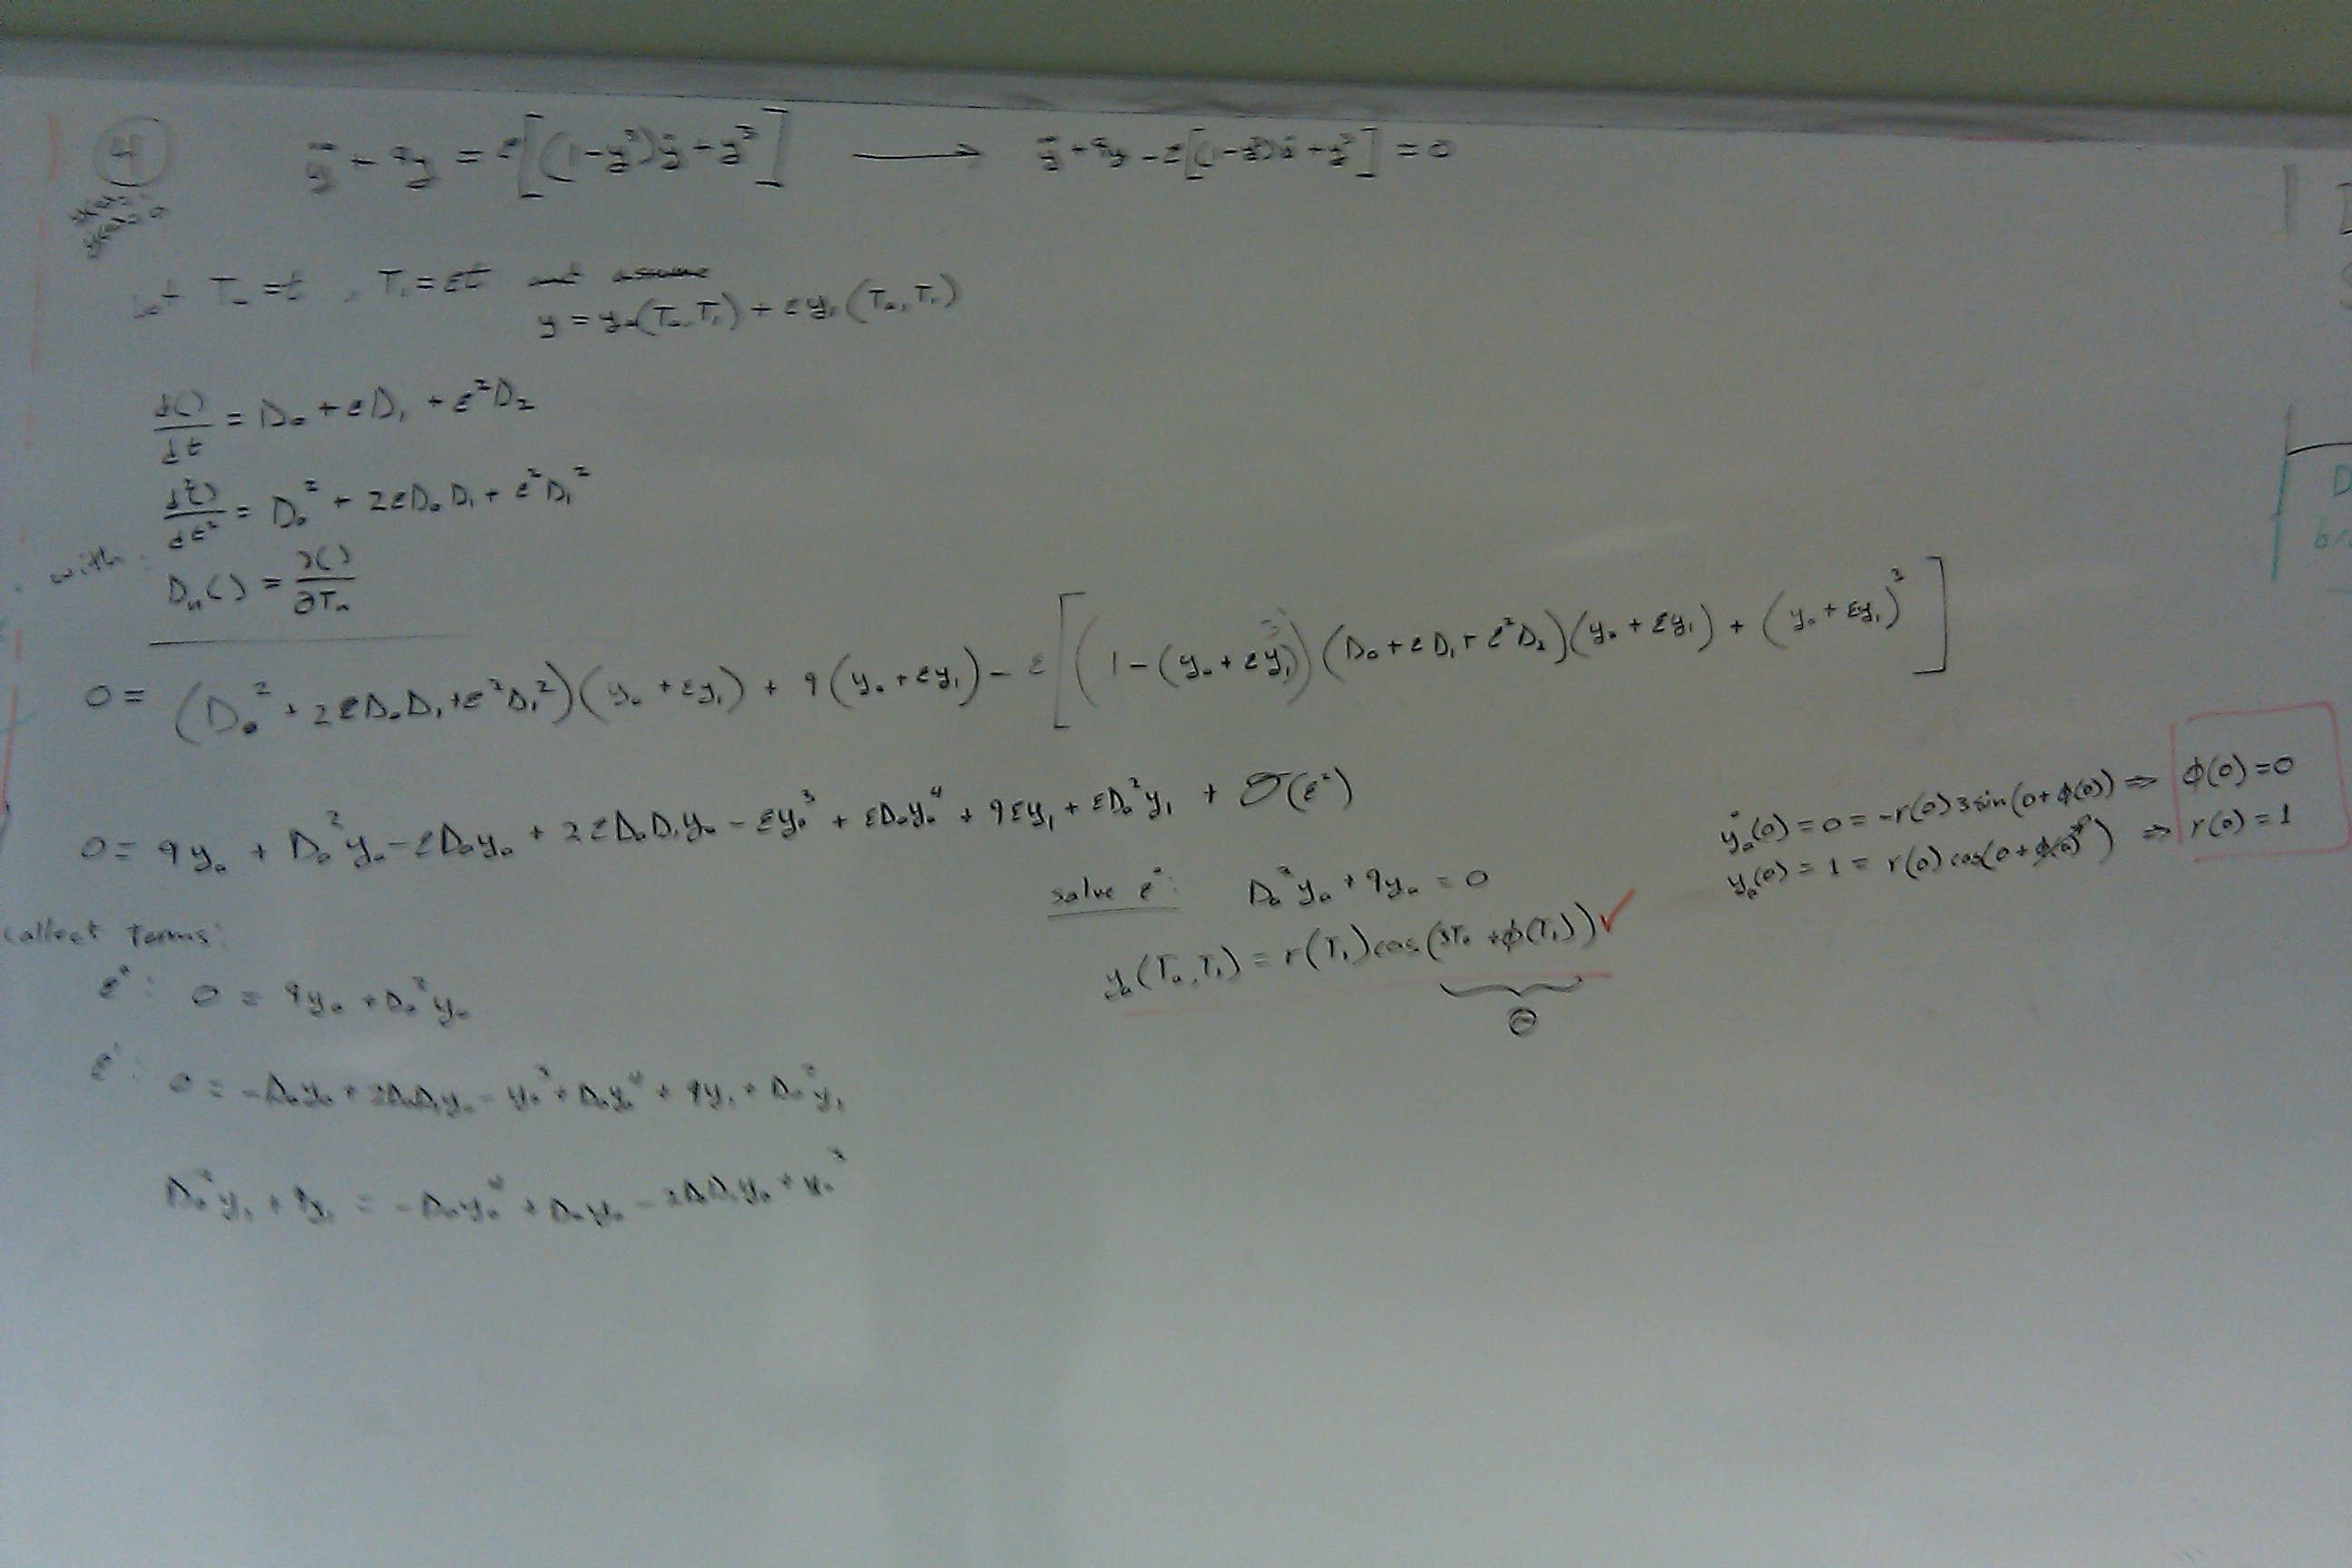 4
ÿ + 9y = ε[(1-y³)ẏ + y³] ⟶ ÿ + 9y - ε[(1-y³)ẏ + y³] = 0
y(0)=1
ẏ(0)=0
Let T₀ = t , T₁ = εt
y = y₀(T₀,T₁) + εy₁(T₀,T₁)
d()/dt = D₀ + εD₁ + ε²D₂
d²()/dt² = D₀² + 2εD₀D₁ + ε²D₁²
with: Dₙ() = ∂()/∂Tₙ
0 = (D₀² + 2εD₀D₁ + ε²D₁²)(y₀ + εy₁) + 9(y₀ + εy₁) - ε[(1-(y₀ + εy₁)³)(D₀ + εD₁ + ε²D₂)(y₀ + εy₁) + (y₀ + εy₁)³]
0 = 9y₀ + D₀²y₀ - εD₀y₀ + 2εD₀D₁y₀ - εy₀³ + εD₀y₀⁴ + 9εy₁ + εD₀²y₁ + O(ε²)
collect terms:
ε⁰: 0 = 9y₀ + D₀²y₀
ε¹: 0 = -D₀y₀ + 2D₀D₁y₀ - y₀³ + D₀y₀⁴ + 9y₁ + D₀²y₁
D₀²y₁ + 9y₁ = -D₀y₀⁴ + D₀y₀ - 2D₀D₁y₀ + y₀³
solve ε⁰: D₀²y₀ + 9y₀ = 0
y₀(T₀,T₁) = r(T₁)cos(3T₀ + φ(T₁)) ✓
Θ
ẏ₀(0) = 0 = -r(0)3sin(0+φ(0)) ⇒ φ(0)=0
y₀(0) = 1 = r(0)cos(0+φ(0)) ⇒ r(0)=1
D